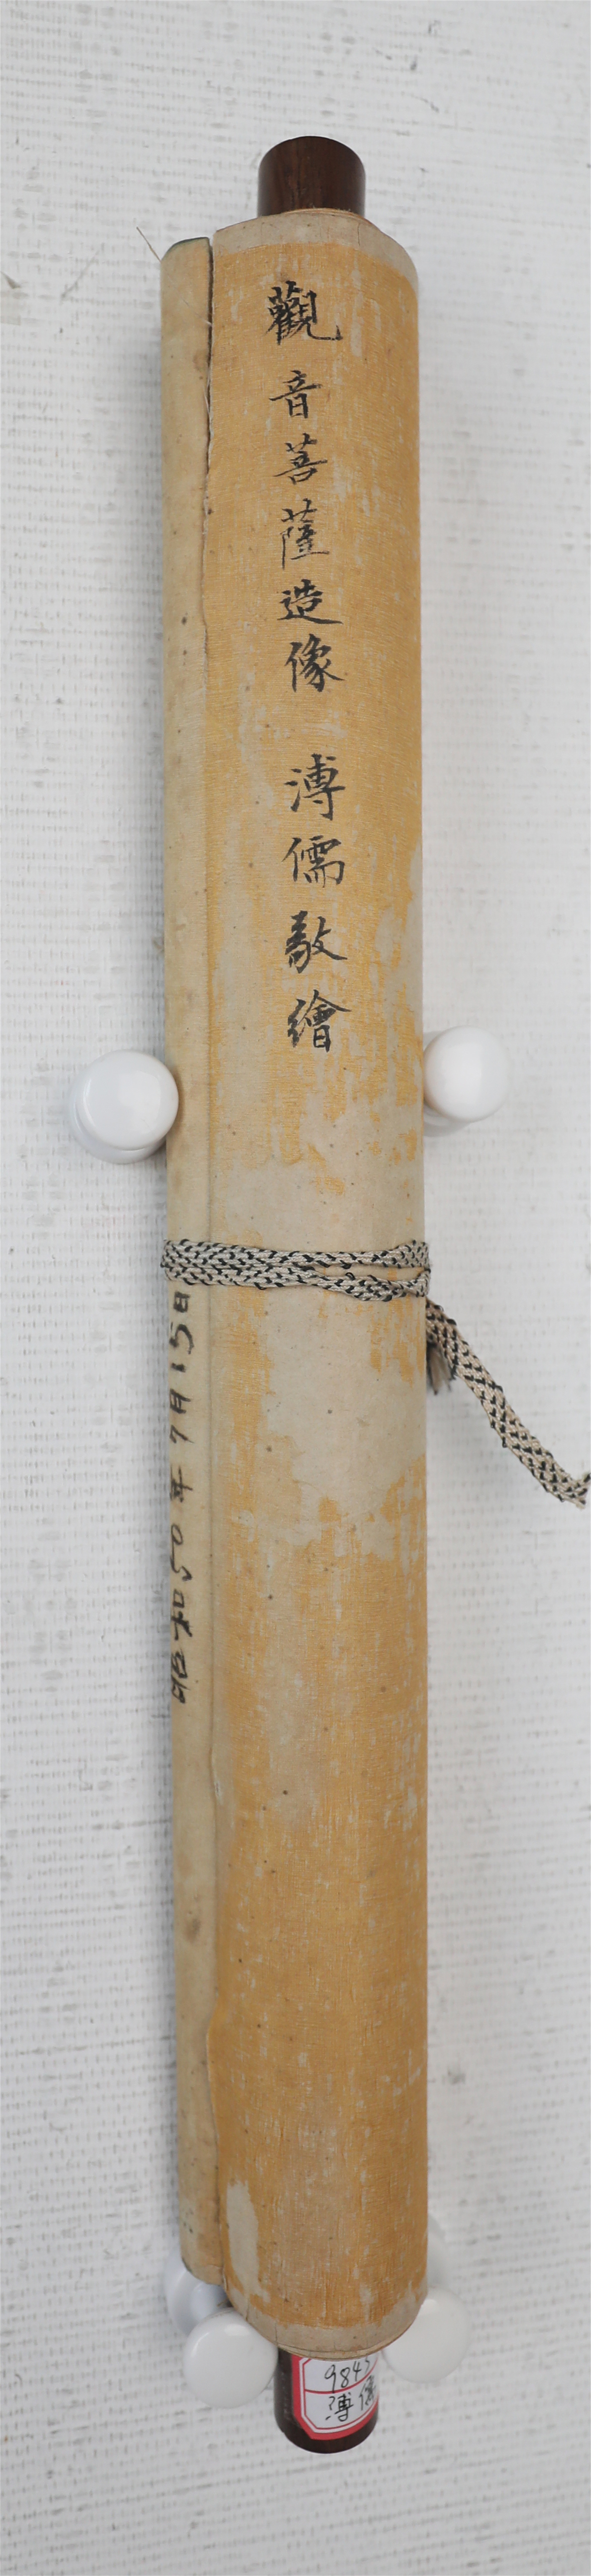 觀音菩薩造像 溥儒敬繪
昭和50年7月15日
溥儒